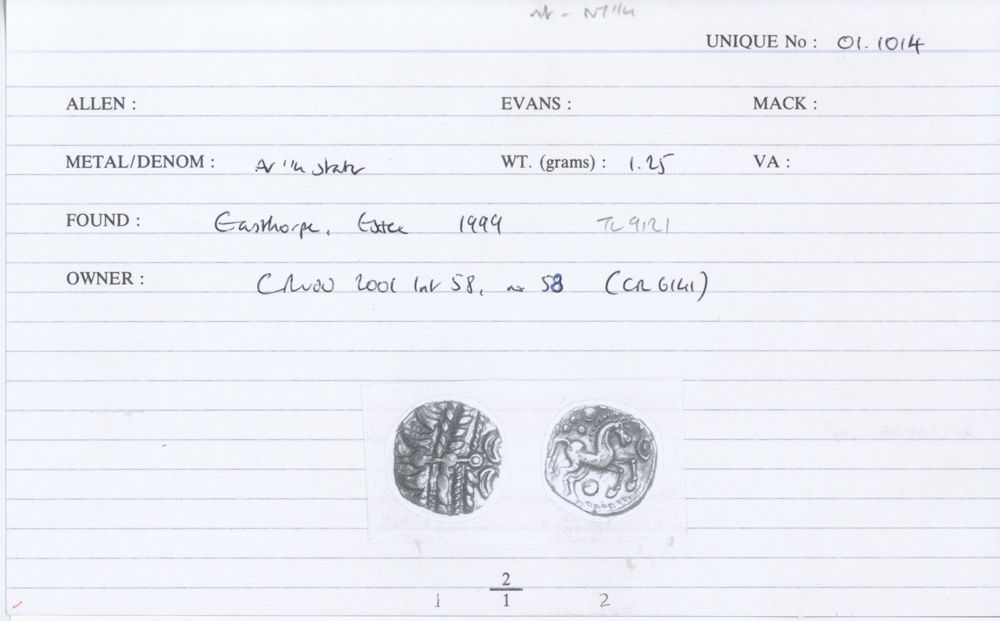 UNIQUE No : 01.1014
ALLEN : EVANS : MACK :
METAL/DENOM : WT. (grams) : 1.25 VA :
FOUND : Easthorpe, Essex 1999 TL 9121
OWNER : 2001 58, no 58 (CR 6141)
2
1 1 2